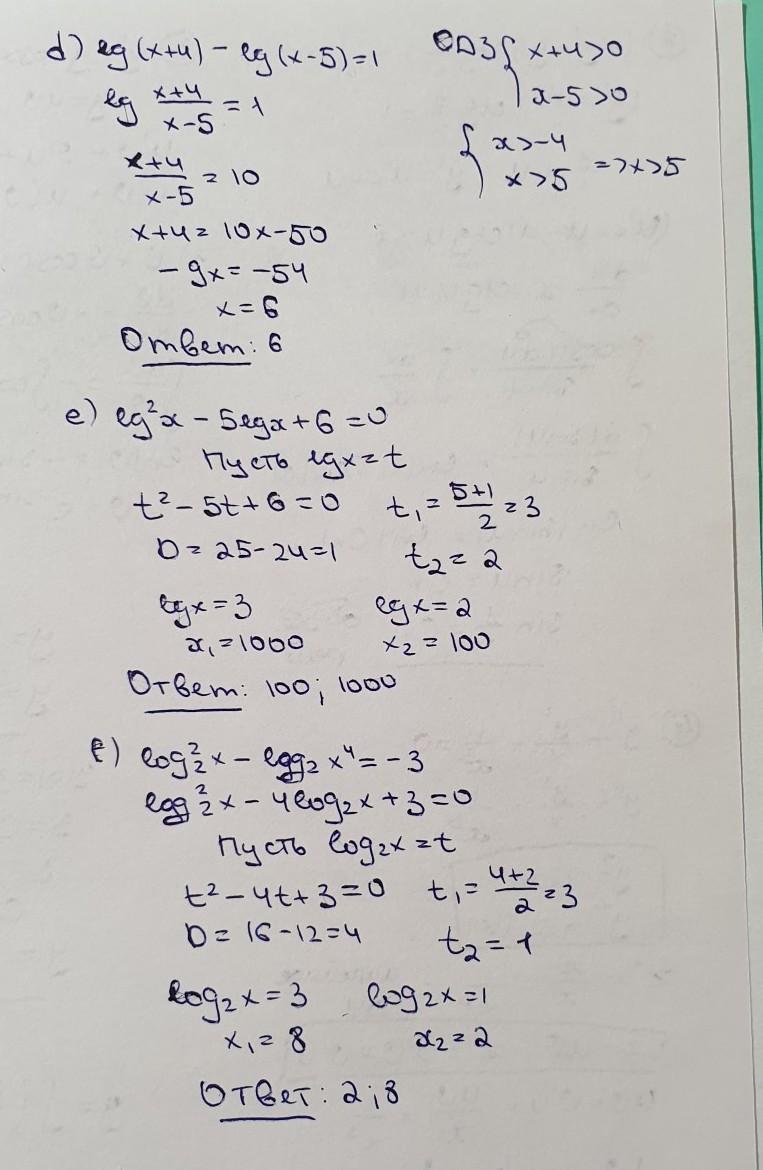 d) lg(x+4) - lg(x-5)=1
ОДЗ { x+4>0
x-5>0
lg (x+4)/(x-5) = 1
{ x>-4
x>5 => x>5
(x+4)/(x-5) = 10
x+4 = 10x-50
-9x = -54
x = 6
Ответ: 6
e) lg²x - 5lgx + 6 = 0
Пусть lgx = t
t² - 5t + 6 = 0 t₁ = (5+1)/2 = 3
D = 25-24=1 t₂ = 2
lgx = 3 lgx = 2
x₁ = 1000 x₂ = 100
Ответ: 100; 1000
f) log₂²x - log₂x⁴ = -3
log₂²x - 4log₂x + 3 = 0
Пусть log₂x = t
t² - 4t + 3 = 0 t₁ = (4+2)/2 = 3
D = 16-12=4 t₂ = 1
log₂x = 3 log₂x = 1
x₁ = 8 x₂ = 2
Ответ: 2; 8